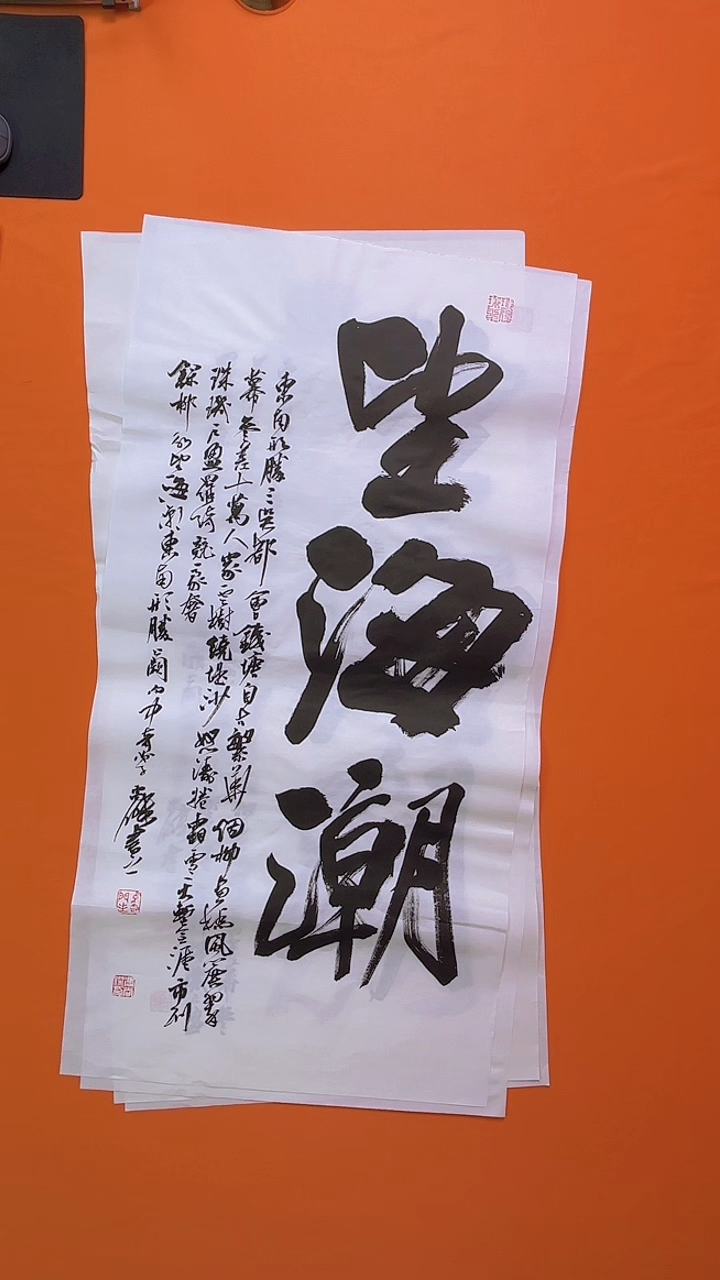 望海潮
東南形勝三吳都會錢塘自古繁華烟柳畫橋風簾翠
幕參差十萬人家雲樹繞堤沙怒濤捲霜雪天塹無涯市列
珠璣戶盈羅綺競豪奢
錄柳永望海潮東南形勝闋
書之